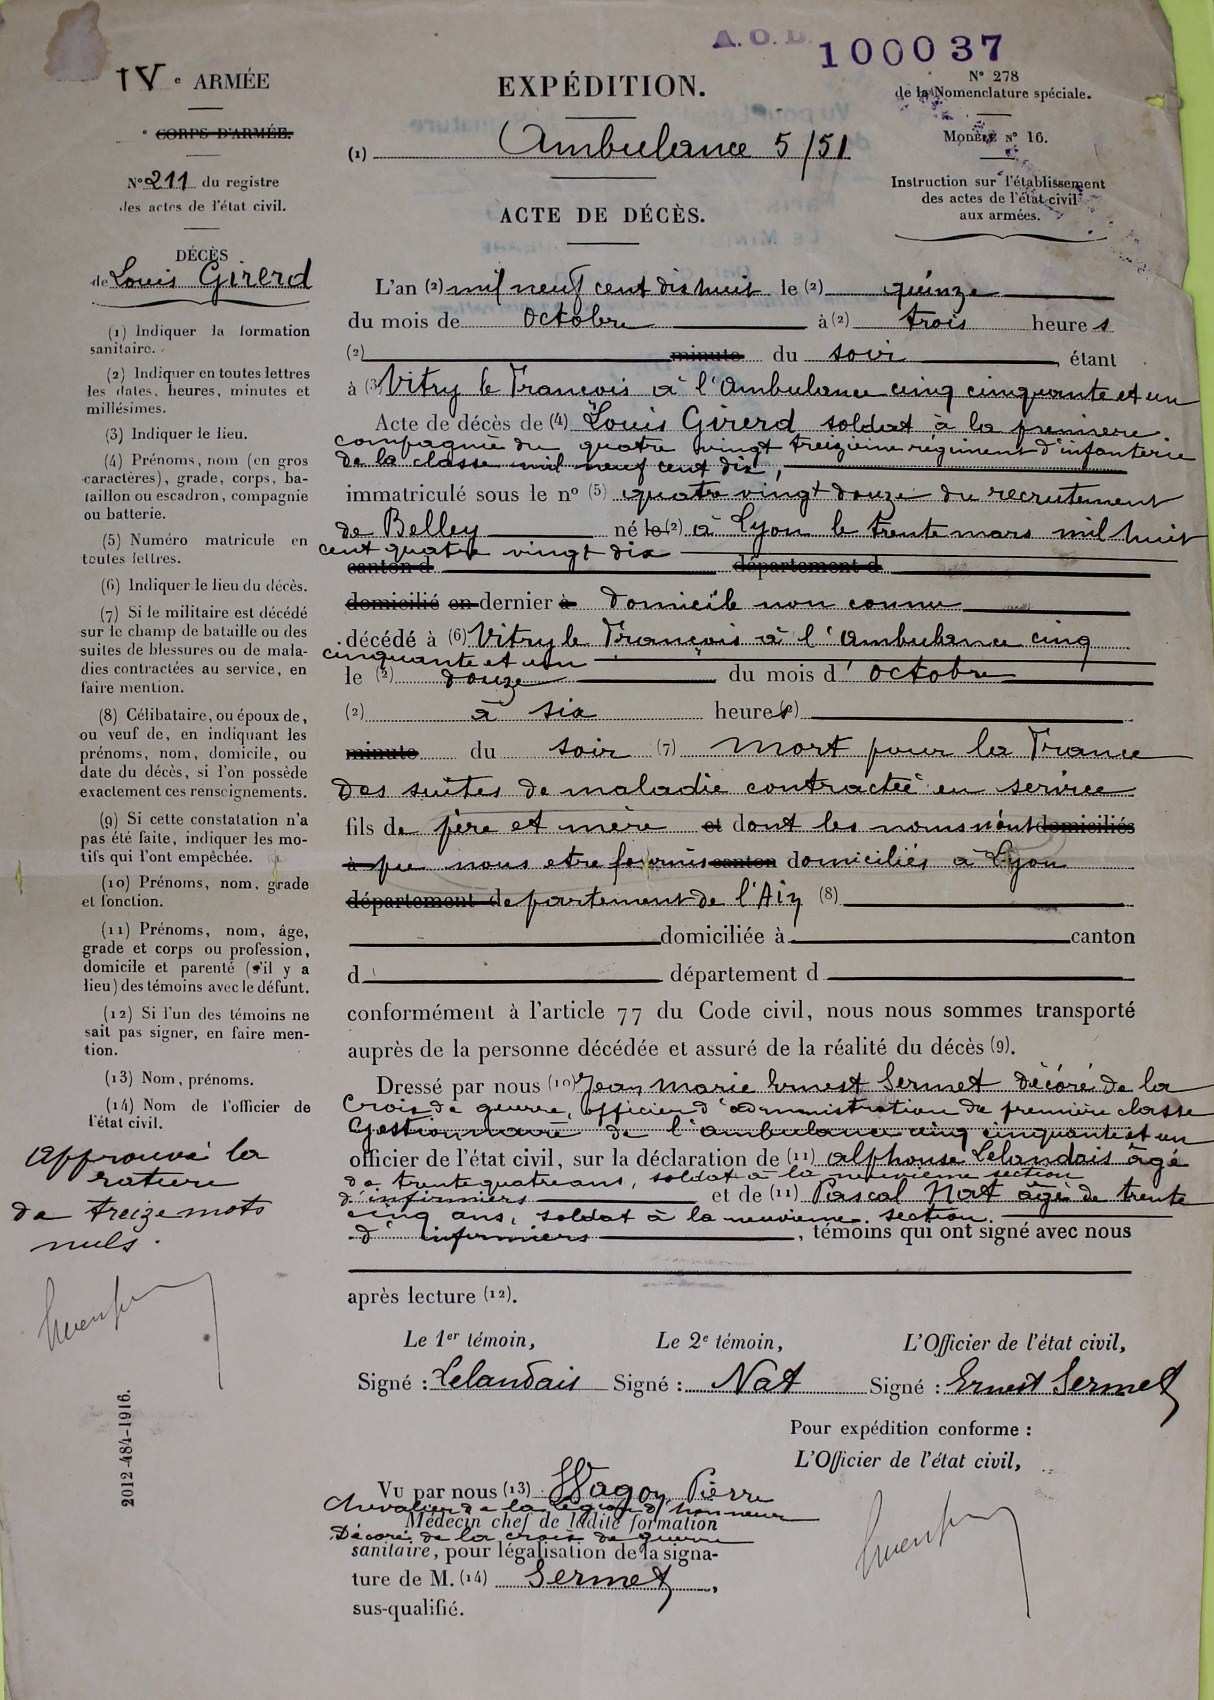 A. O. D. 100037
IVe ARMÉE
e CORPS D'ARMÉE.
No 211 du registre
des actes de l'état civil.
DÉCÈS
de Louis Girerd
(1) Indiquer la formation
sanitaire.
(2) Indiquer en toutes lettres
les dates, heures, minutes et
millésimes.
(3) Indiquer le lieu.
(4) Prénoms, nom (en gros
caractères), grade, corps, ba-
taillon ou escadron, compagnie
ou batterie.
(5) Numéro matricule en
toutes lettres.
(6) Indiquer le lieu du décès.
(7) Si le militaire est décédé
sur le champ de bataille ou des
suites de blessures ou de mala-
dies contractées au service, en
faire mention.
(8) Célibataire, ou époux de,
ou veuf de, en indiquant les
prénoms, nom, domicile, ou
date du décès, si l'on possède
exactement ces renseignements.
(9) Si cette constatation n'a
pas été faite, indiquer les mo-
tifs qui l'ont empêchée.
(10) Prénoms, nom, grade
et fonction.
(11) Prénoms, nom, âge,
grade et corps ou profession,
domicile et parenté (s'il y a
lieu) des témoins avec le défunt.
(12) Si l'un des témoins ne
sait pas signer, en faire men-
tion.
(13) Nom, prénoms.
(14) Nom de l'officier de
l'état civil.
Approuvé la
rature
de treize mots
nuls.
2012-484-1916.
EXPÉDITION.
(1) Ambulance 5/51
ACTE DE DÉCÈS.
No 278
de la Nomenclature spéciale.
MODÈLE No 16.
Instruction sur l'établissement
des actes de l'état civil
aux armées.
L'an (2) mil neuf cent dix huit le (2) quinze
du mois de octobre à (2) trois heures
(2) minute du soir, étant
à (3) Vitry le François à l'Ambulance cinq cinquante et un
Acte de décès de (4) Louis Girerd soldat à la première
compagnie du quatre vingt treizième régiment d'infanterie
de la classe mil neuf cent dix,
immatriculé sous le no (5) quatre vingt douze du recrutement
de Belley né le (2) à Lyon le trente mars mil huit
cent quatre vingt dix
canton d département d
domicilié en dernier à domicile non connu
décédé à (6) Vitry le François à l'ambulance cinq
cinquante et un
le (2) douze du mois d'octobre
(2) à six heures (2)
minute du soir (7) Mort pour la France
des suites de maladie contractée en service
fils de père et mère et dont les noms n'ont domiciliés
à pu nous etre fournis canton domiciliés à Lyon
département departement de l'Ain (8)
domiciliée à canton
d département d
conformément à l'article 77 du Code civil, nous nous sommes transporté
auprès de la personne décédée et assuré de la réalité du décès (9).
Dressé par nous (10) Jean Marie Ernest Sermet décoré de la
Croix de guerre, officier d'administration de première classe
Gestionnaire de l'ambulance cinq cinquante et un
officier de l'état civil, sur la déclaration de (11) alphonse Lelandais âgé
de trente quatre ans, soldat à la section
d'infirmiers et de (11) Pascal Nat âgé de trente
cinq ans, soldat à la neuvieme section
d'infirmiers, témoins qui ont signé avec nous
après lecture (12).
Le 1er témoin, Le 2e témoin, L'Officier de l'état civil,
Signé : Lelandais Signé : Nat Signé : Ernest Sermet
Pour expédition conforme :
L'Officier de l'état civil,
Vu par nous (13) Wagon Pierre
Chevalier de la légion d'honneur
Médecin chef de ladite formation
Décoré de la croix de guerre
sanitaire, pour légalisation de la signa-
ture de M. (14) Sermet,
sus-qualifié.